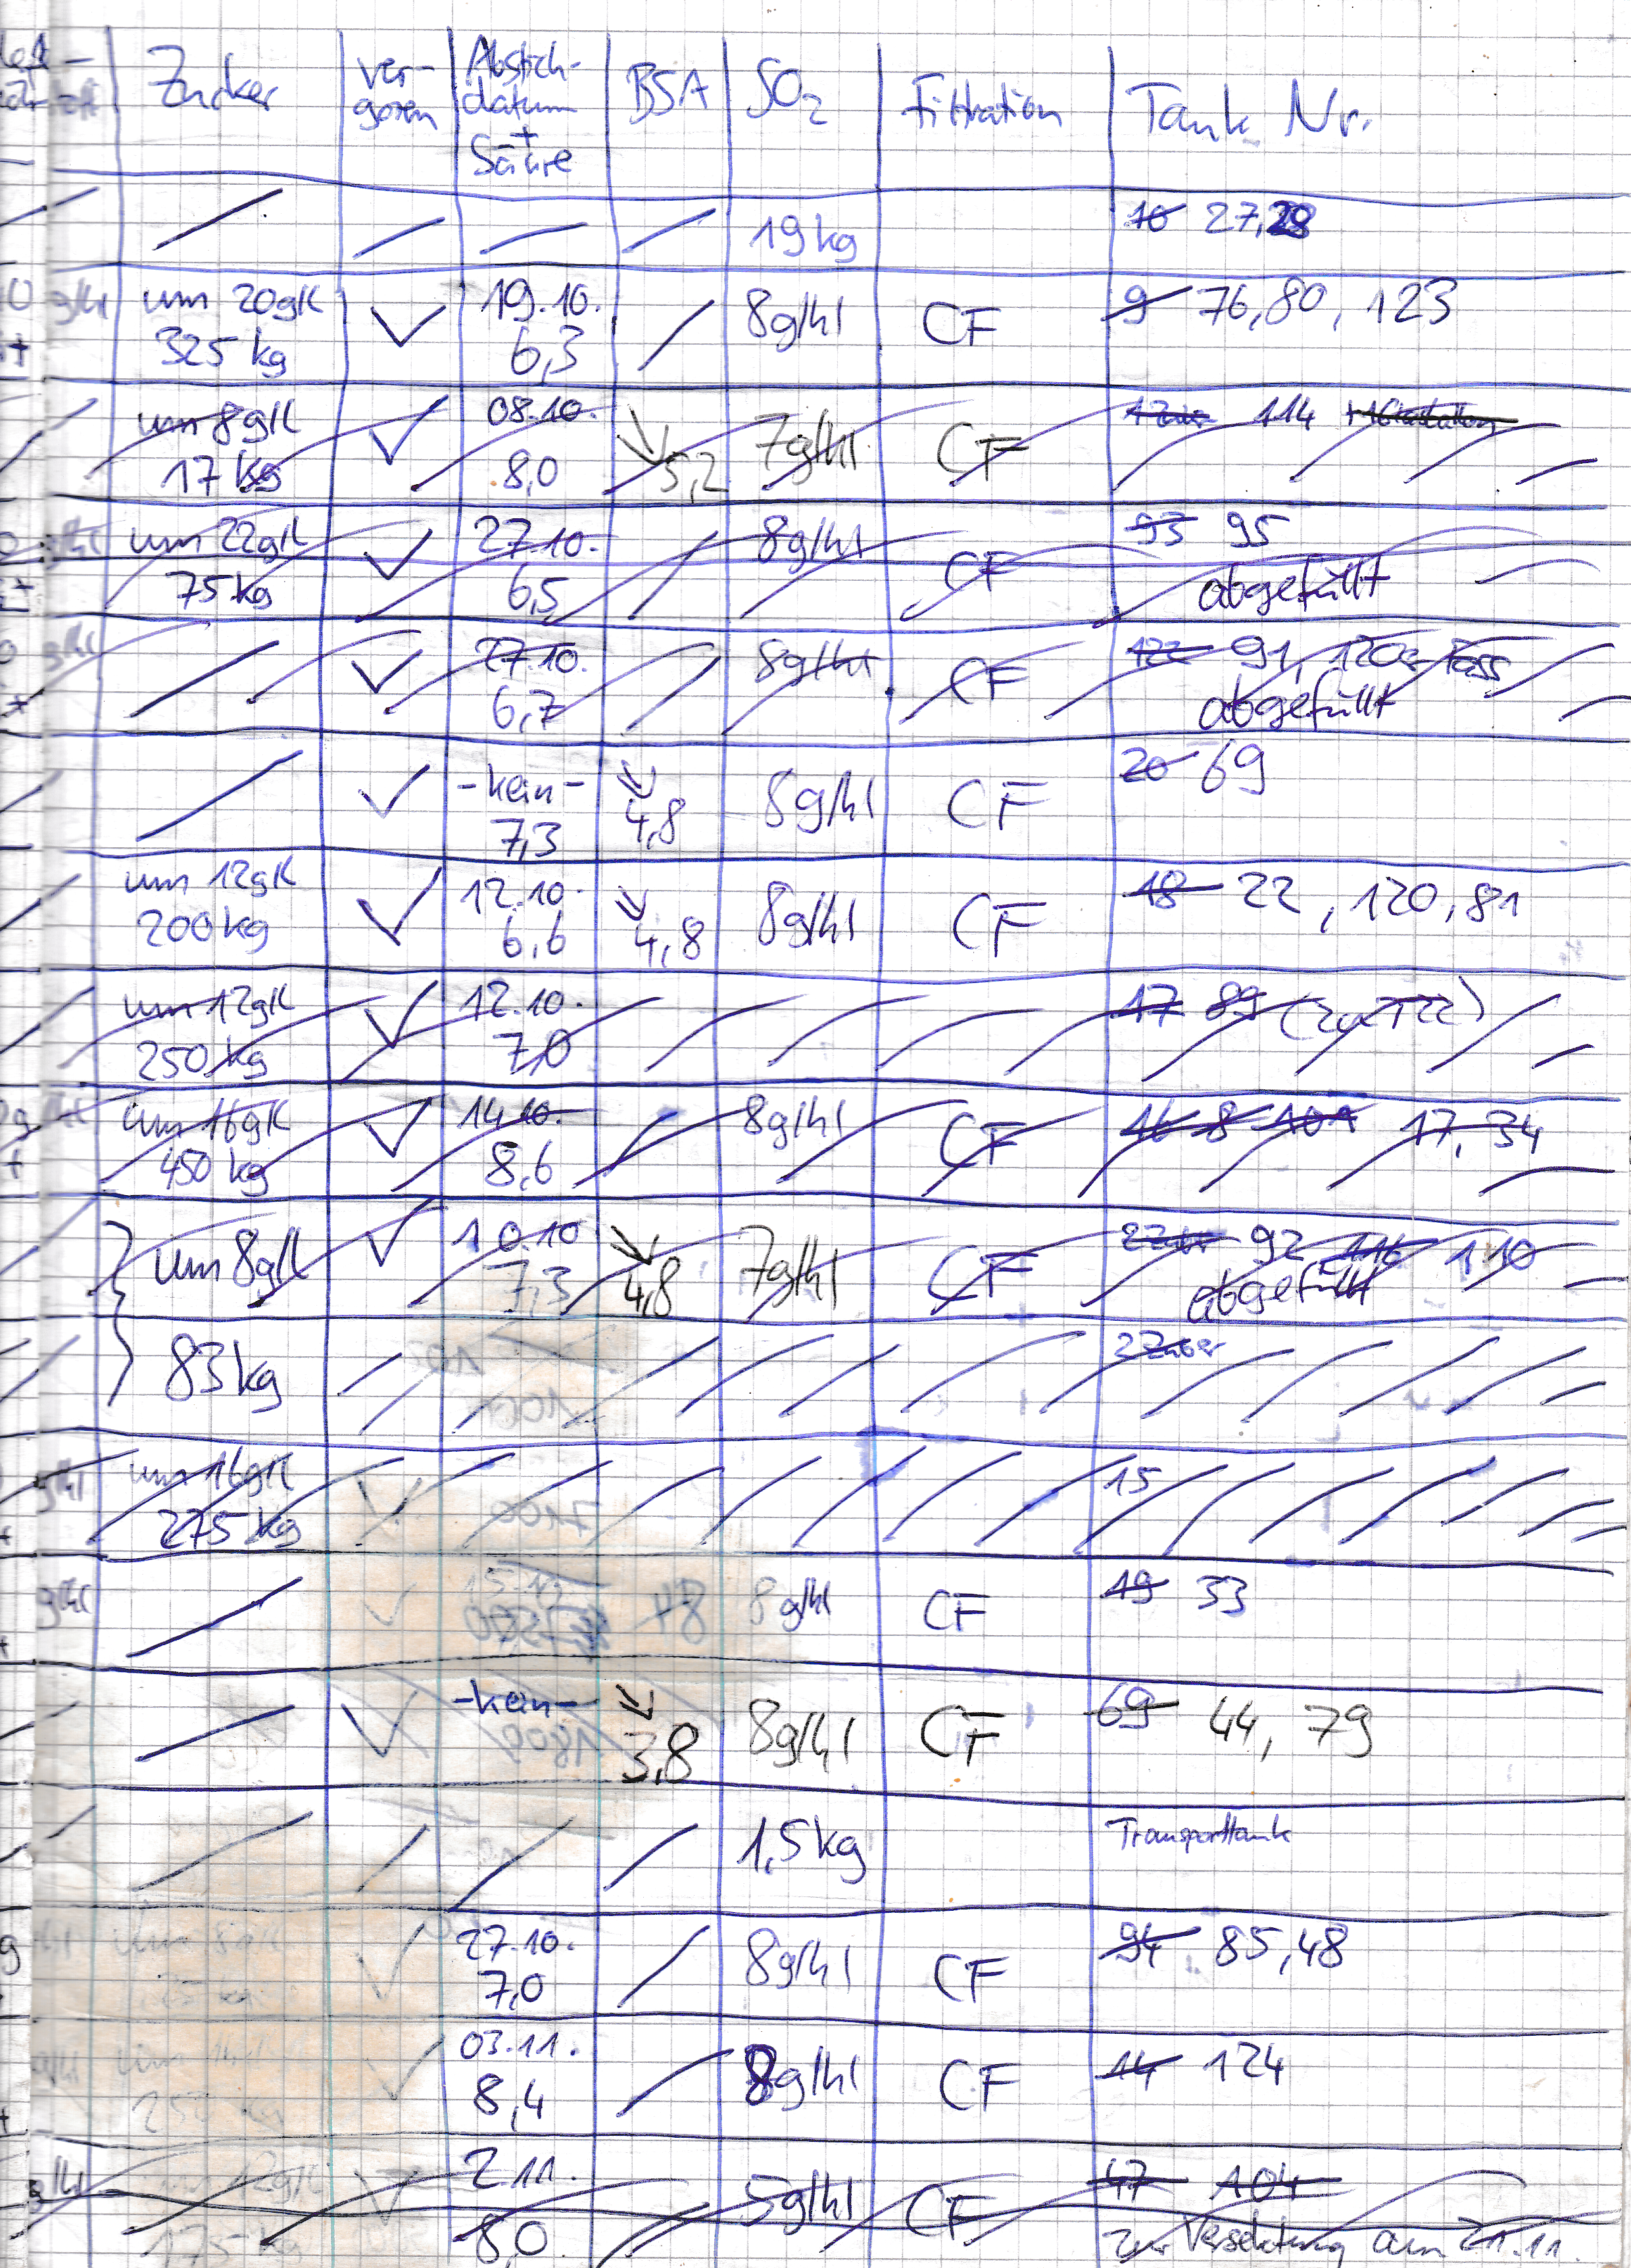 Zucker ver- Abstich- BSA SO2 Filtration Tank Nr.
goren datum
+
Säure
19kg 10 27,28
um 20g/l 19.10. 8g/hl CF 9 76,80, 123
325 kg 6,3
um 8g/l 08.10. 7g/hl CF 114
17 kg 8,0 5,2
um 22g/l 27.10. 8g/hl CF 93 95
75kg 6,5 abgefüllt
27.10. 8g/hl CF 122 91, 120
6,7 abgefüllt
-kein- 8g/hl CF 20 69
7,3 4,8
um 12g/l 12.10. 8g/hl CF 18 22, 120, 81
200kg 6,6 4,8
um 12g/l 12.10. 17 89 (zu T22)
250kg 7,0
um 16g/l 14.10. 8g/hl CF 16 8 109 17, 34
450 kg 8,6
um 8g/l 10.10 7g/hl CF 92 116 110
7,3 4,8 abgefüllt
83kg 2Zuber
um 16g/l 15
275 kg
8g/hl CF 19 33
-kein- 8g/hl CF 69 44, 79
3,8
1,5kg Transporttank
27.10. 8g/hl CF 94 85,48
7,0
03.11. 8g/hl CF 14 124
8,4
2.11. 5g/hl CF 47 104
175 kg 8,0 Zur Versektung am 21.11.